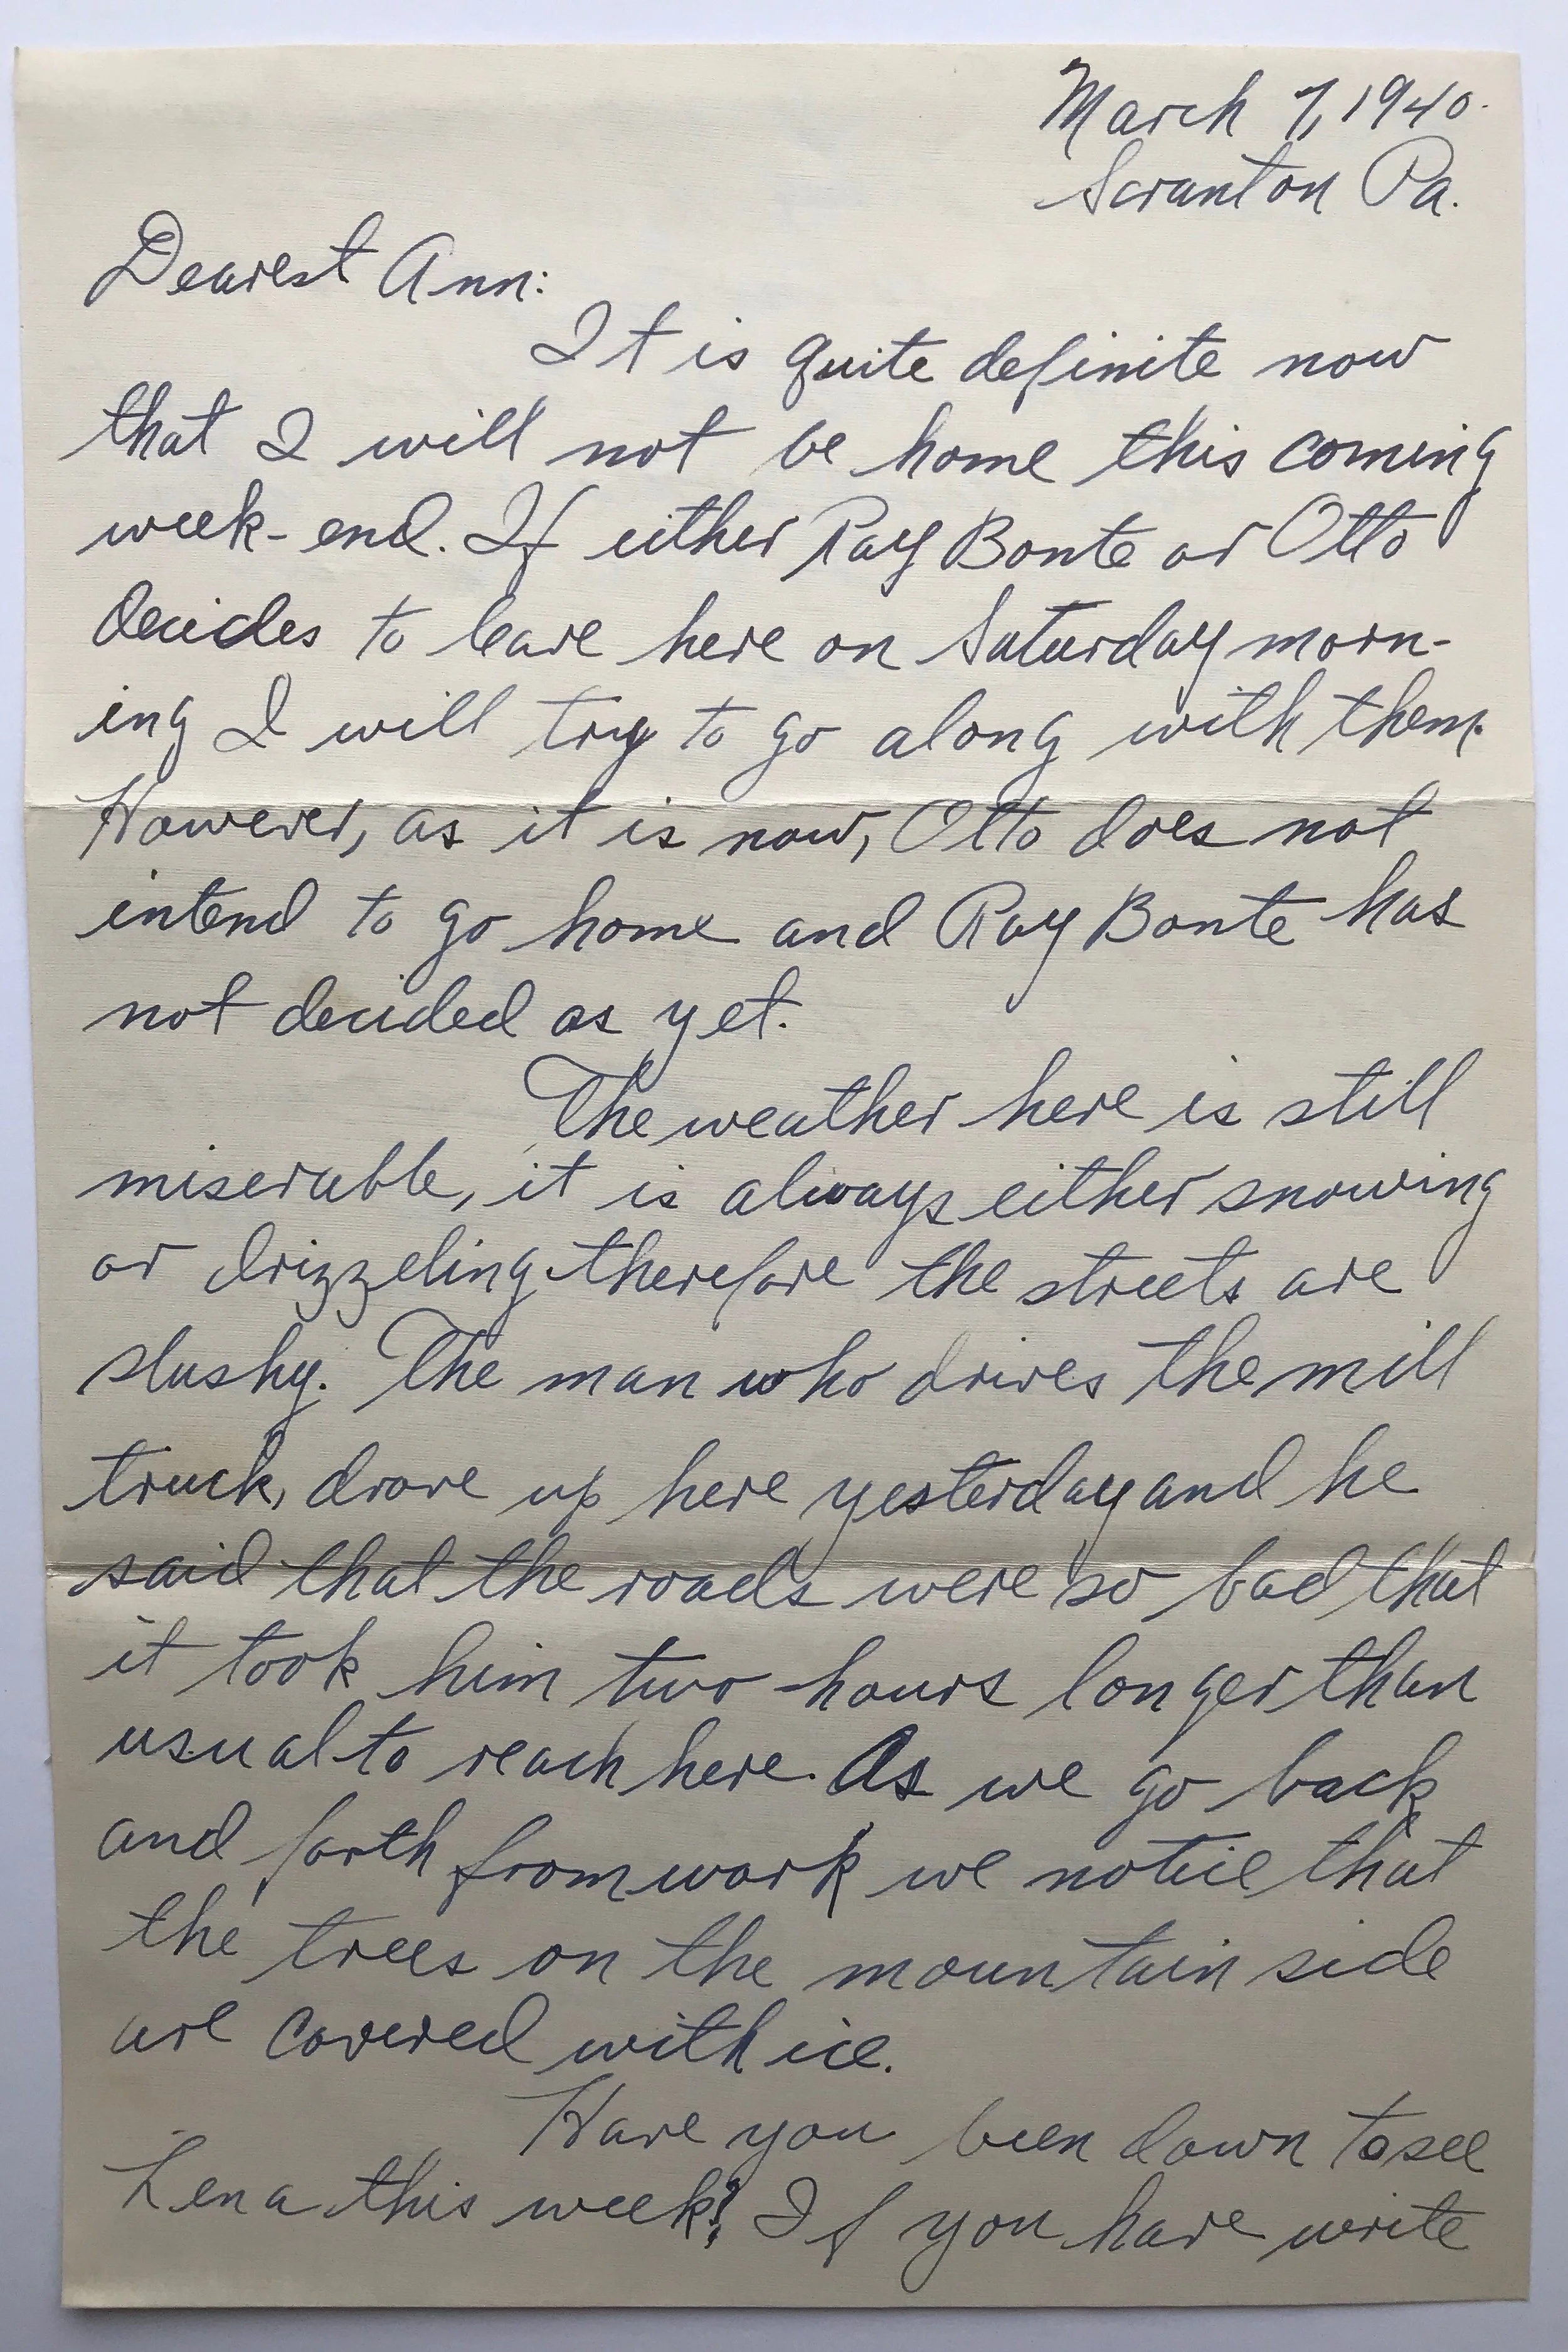 March 7, 1940.
Scranton Pa.
Dearest Ann:
It is quite definite now
that I will not be home this coming
week-end. If either Ray Bonte or Otto
decides to leave here on Saturday morn-
ing I will try to go along with them.
However, as it is now, Otto does not
intend to go home and Ray Bonte has
not decided as yet.
The weather here is still
miserable, it is always either snowing
or drizzeling therefore the streets are
slushy. The man who drives the mill
truck, drove up here yesterday and he
said that the roads were so bad that
it took him two hours longer than
usual to reach here. As we go back
and forth from work we notice that
the trees on the mountain side
are covered with ice.
Have you been down to see
Lena this week? If you have write